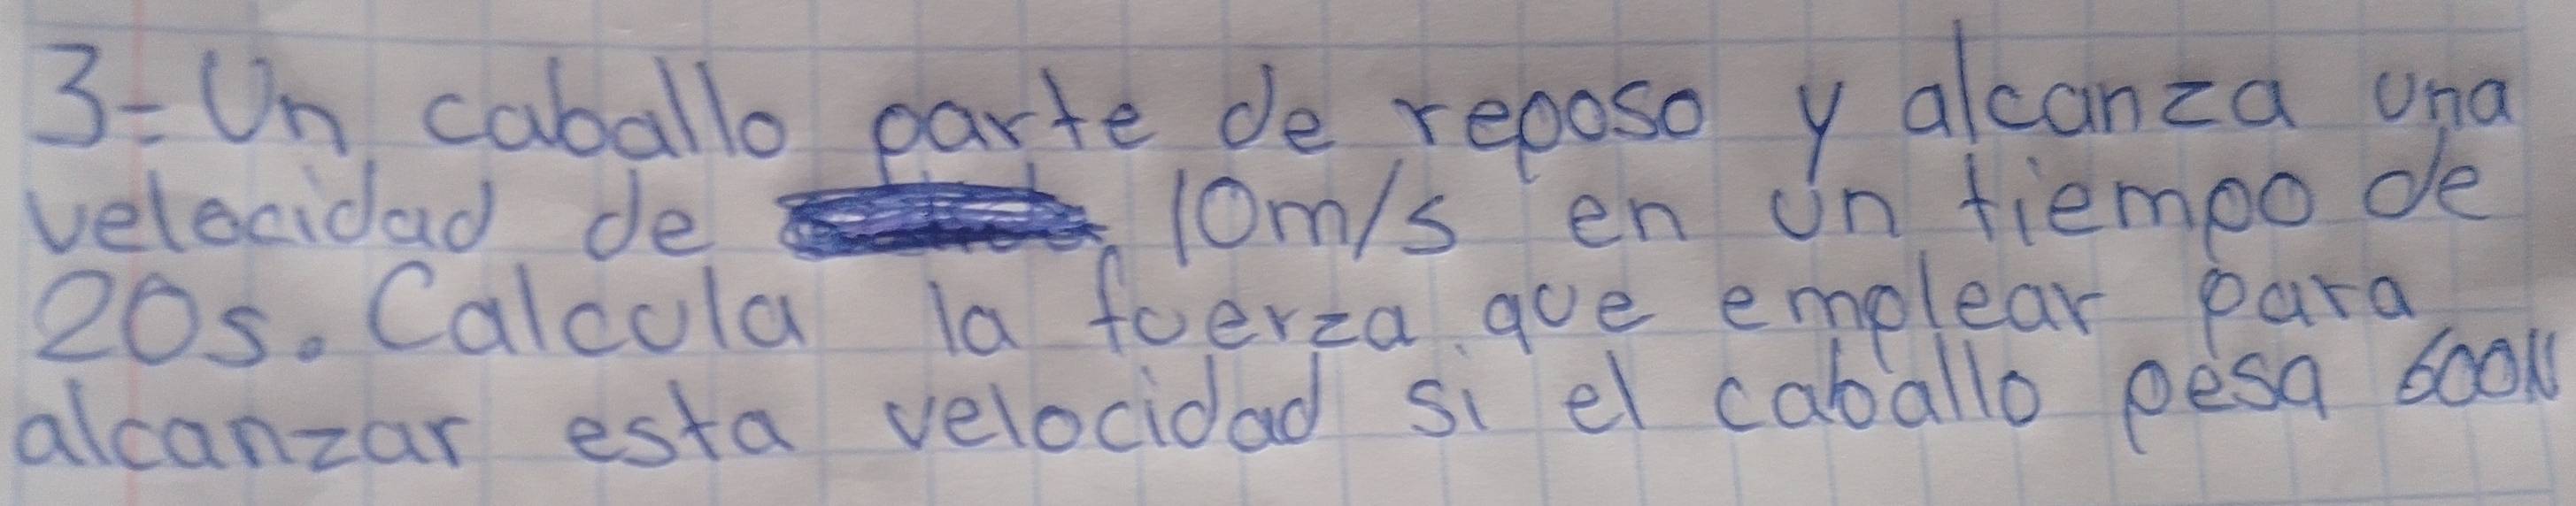 3- Un caballo parte de reposo y alcanza una
velocidad de 10m/s en un tiempo de
20s. Calcula la fuerza que emplear para
alcanzar esta velocidad si el caballo pesa 600N